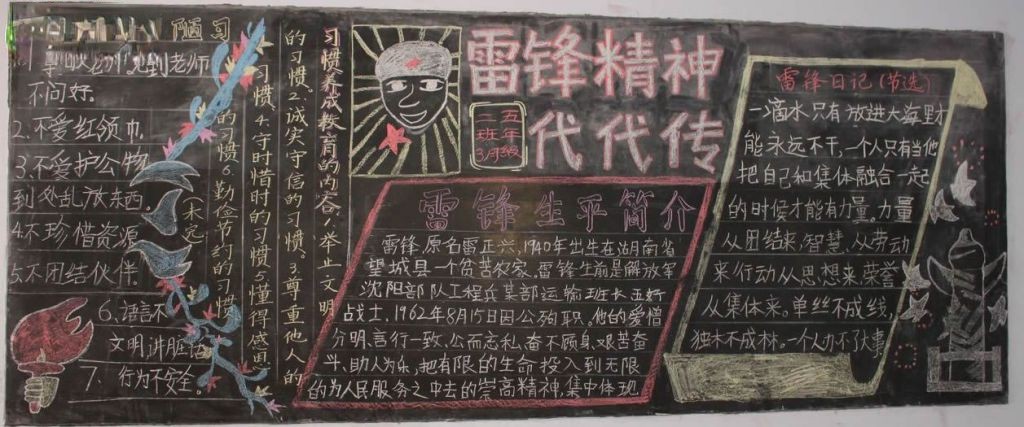 陋习
到老师
不问好。
2.不爱红领巾
3.不爱护公物
到处乱放东西。
4.不珍惜资源
5.不团结伙伴。
6.语言不
文明,讲脏话
7、行为不安全。
习惯养成教育的内容:1.举止文明
的习惯。2.诚实守信的习惯。3.尊重他人的
习惯。4.守时惜时的习惯5.懂得感恩
的习惯6.勤俭节约的习惯
(未完)
雷锋精神
代代传
五年级
二班
3月
雷锋生平简介
雷锋原名雷正兴,1940年出生在湖南省
望城县一个贫苦农家,雷锋生前是解放军
沈阳部队工程兵某部运输班长五好
战士,1962年8月15日因公殉职。他的爱憎
分明、言行一致、公而忘私、奋不顾身、艰苦奋
斗、助人为乐,把有限的生命投入到无限
的为人民服务之中去的崇高精神,集中体现
雷锋日记(节选)
一滴水只有放进大海里才
能永远不干,一个人只有当他
把自己和集体融合一起
的时候才能有力量。力量
从团结来,智慧从劳动
来,行动从思想来,荣誉
从集体来。单丝不成线,
独木不成林。一个人办不了大事